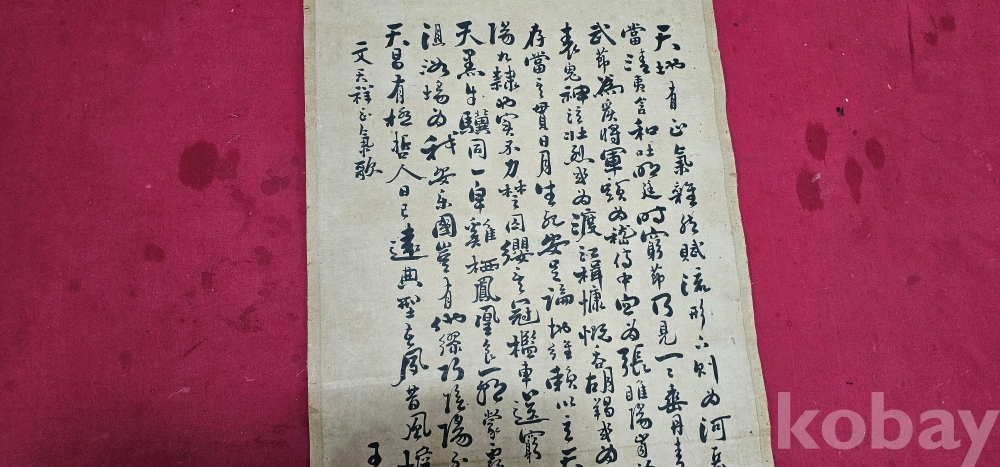 天地有正氣雜然賦流形下則為河嶽
當清夷含和吐明庭時窮節乃見一一垂丹青
武節為嚴將軍頭為嵇侍中血為張睢陽齒
表鬼神泣壯烈或為渡江楫慷慨吞胡羯或為
存當其貫日月生死安足論地維賴以立天
陽九隸也實不力楚囚纓其冠檻車送窮
天黑牛驥同一皁雞栖鳳凰食一朝蒙霧
沮洳場為我安樂國豈有他繆巧陰陽不
天曷有極哲人日已遠典型在夙昔風簷
文天祥正氣歌
王
kobay